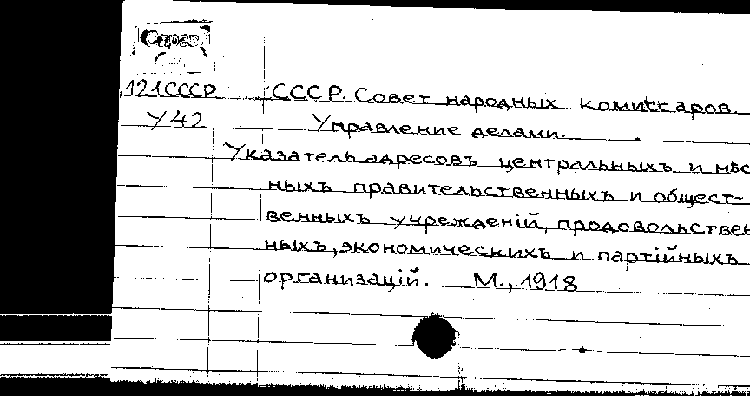 Справ.
121СССР СССР. Совет народных комиссаров.
У42 Управление делами.
Указатель адресовъ центральныхъ и мѣс
ныхъ правительственныхъ и общест-
венныхъ учрежденій, продовольствен
ныхъ, экономическихъ и партійныхъ
организацій. М., 1918